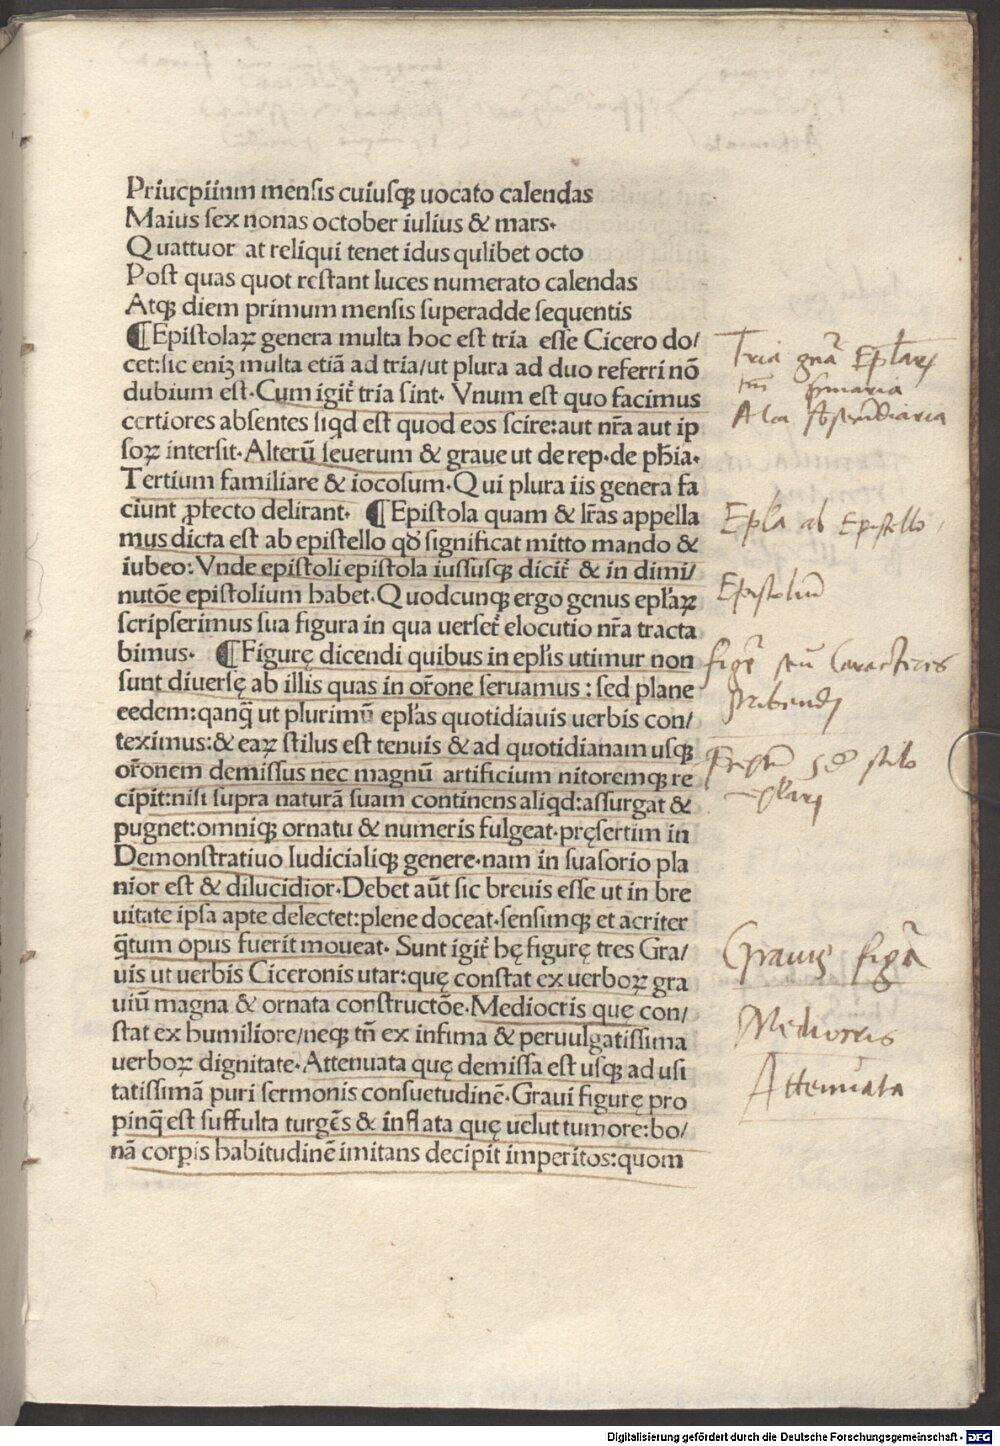 Priucpiinm mensis cuiusqꝫ uocato calendas
Maius sex nonas october iulius & mars·
Quattuor at reliqui tenet idus qulibet octo
Post quas quot restant luces numerato calendas
Atqꝫ diem primum mensis superadde sequentis
¶Epistolaꝝ genera multa hoc est tria esse Cicero do/
cet:sic eniꝫ multa etiā ad tria/ut plura ad duo referri nō
dubium est·Cum igit̄ tria sint· Vnum est quo facimus
certiores absentes siqd est quod eos scire:aut nr̄a aut ip
soꝝ intersit·Alterū seuerum & graue ut de rep·de ph̄ia·
Tertium familiare & iocosum·Qui plura iis genera fa
ciunt ꝓfecto delirant· ¶Epistola quam & lr̄as appella
mus dicta est ab epistello qđ significat mitto mando &
iubeo:Vnde epistoli epistola iussusqꝫ dicit̄ & in dimi/
nutōe epistolium habet·Quodcunqꝫ ergo genus epl̄aꝝ
scripserimus sua figura in qua uerset̄ elocutio nr̄a tracta
bimus· ¶Figurę dicendi quibus in epl̄is utimur non
sunt diuersę ab illis quas in or̄one seruamus : sed plane
eedem:qanq̄ ut plurimū epl̄as quotidiauis uerbis con/
teximus:& eaꝝ stilus est tenuis & ad quotidianam usqꝫ
or̄onem demissus nec magnū artificium nitoremqꝫ re
cipit:nisi supra naturā suam continens aliqd:assurgat &
pugnet:omniqꝫ ornatu & numeris fulgeat·pręsertim in
Demonstratiuo Iudicialiqꝫ genere·nam in suasorio pla
nior est & dilucidior·Debet aūt sic breuis esse ut in bre
uitate ipsa apte delectet:plene doceat·sensimqꝫ et acriter
q̄tum opus fuerit moueat· Sunt igit̄ hę figurę tres Gra/
uis ut uerbis Ciceronis utar:quę constat ex uerboꝝ gra
uiū magna & ornata constructōe·Mediocris quę con/
stat ex humiliore/neqꝫ tn̄ ex infima & peruulgatissima
uerboꝝ dignitate·Attenuata quę demissa est usqꝫ ad usi
tatissimā puri sermonis consuetudinē·Graui figurę pro
pinq̄ est suffulta turgēs & inflata quę uelut tumore:bo/
nā corpis habitudinē imitans decipit imperitos:quom
Tria gn̄a Epl̄arꝫ
Epl̄a ab Epistello
Epistoliū
figę seu Caracteres
stilo
epl̄arꝫ
Grauis figā
Mediocris
Attenuata
Digitalisierung gefördert durch die Deutsche Forschungsgemeinschaft - DFG